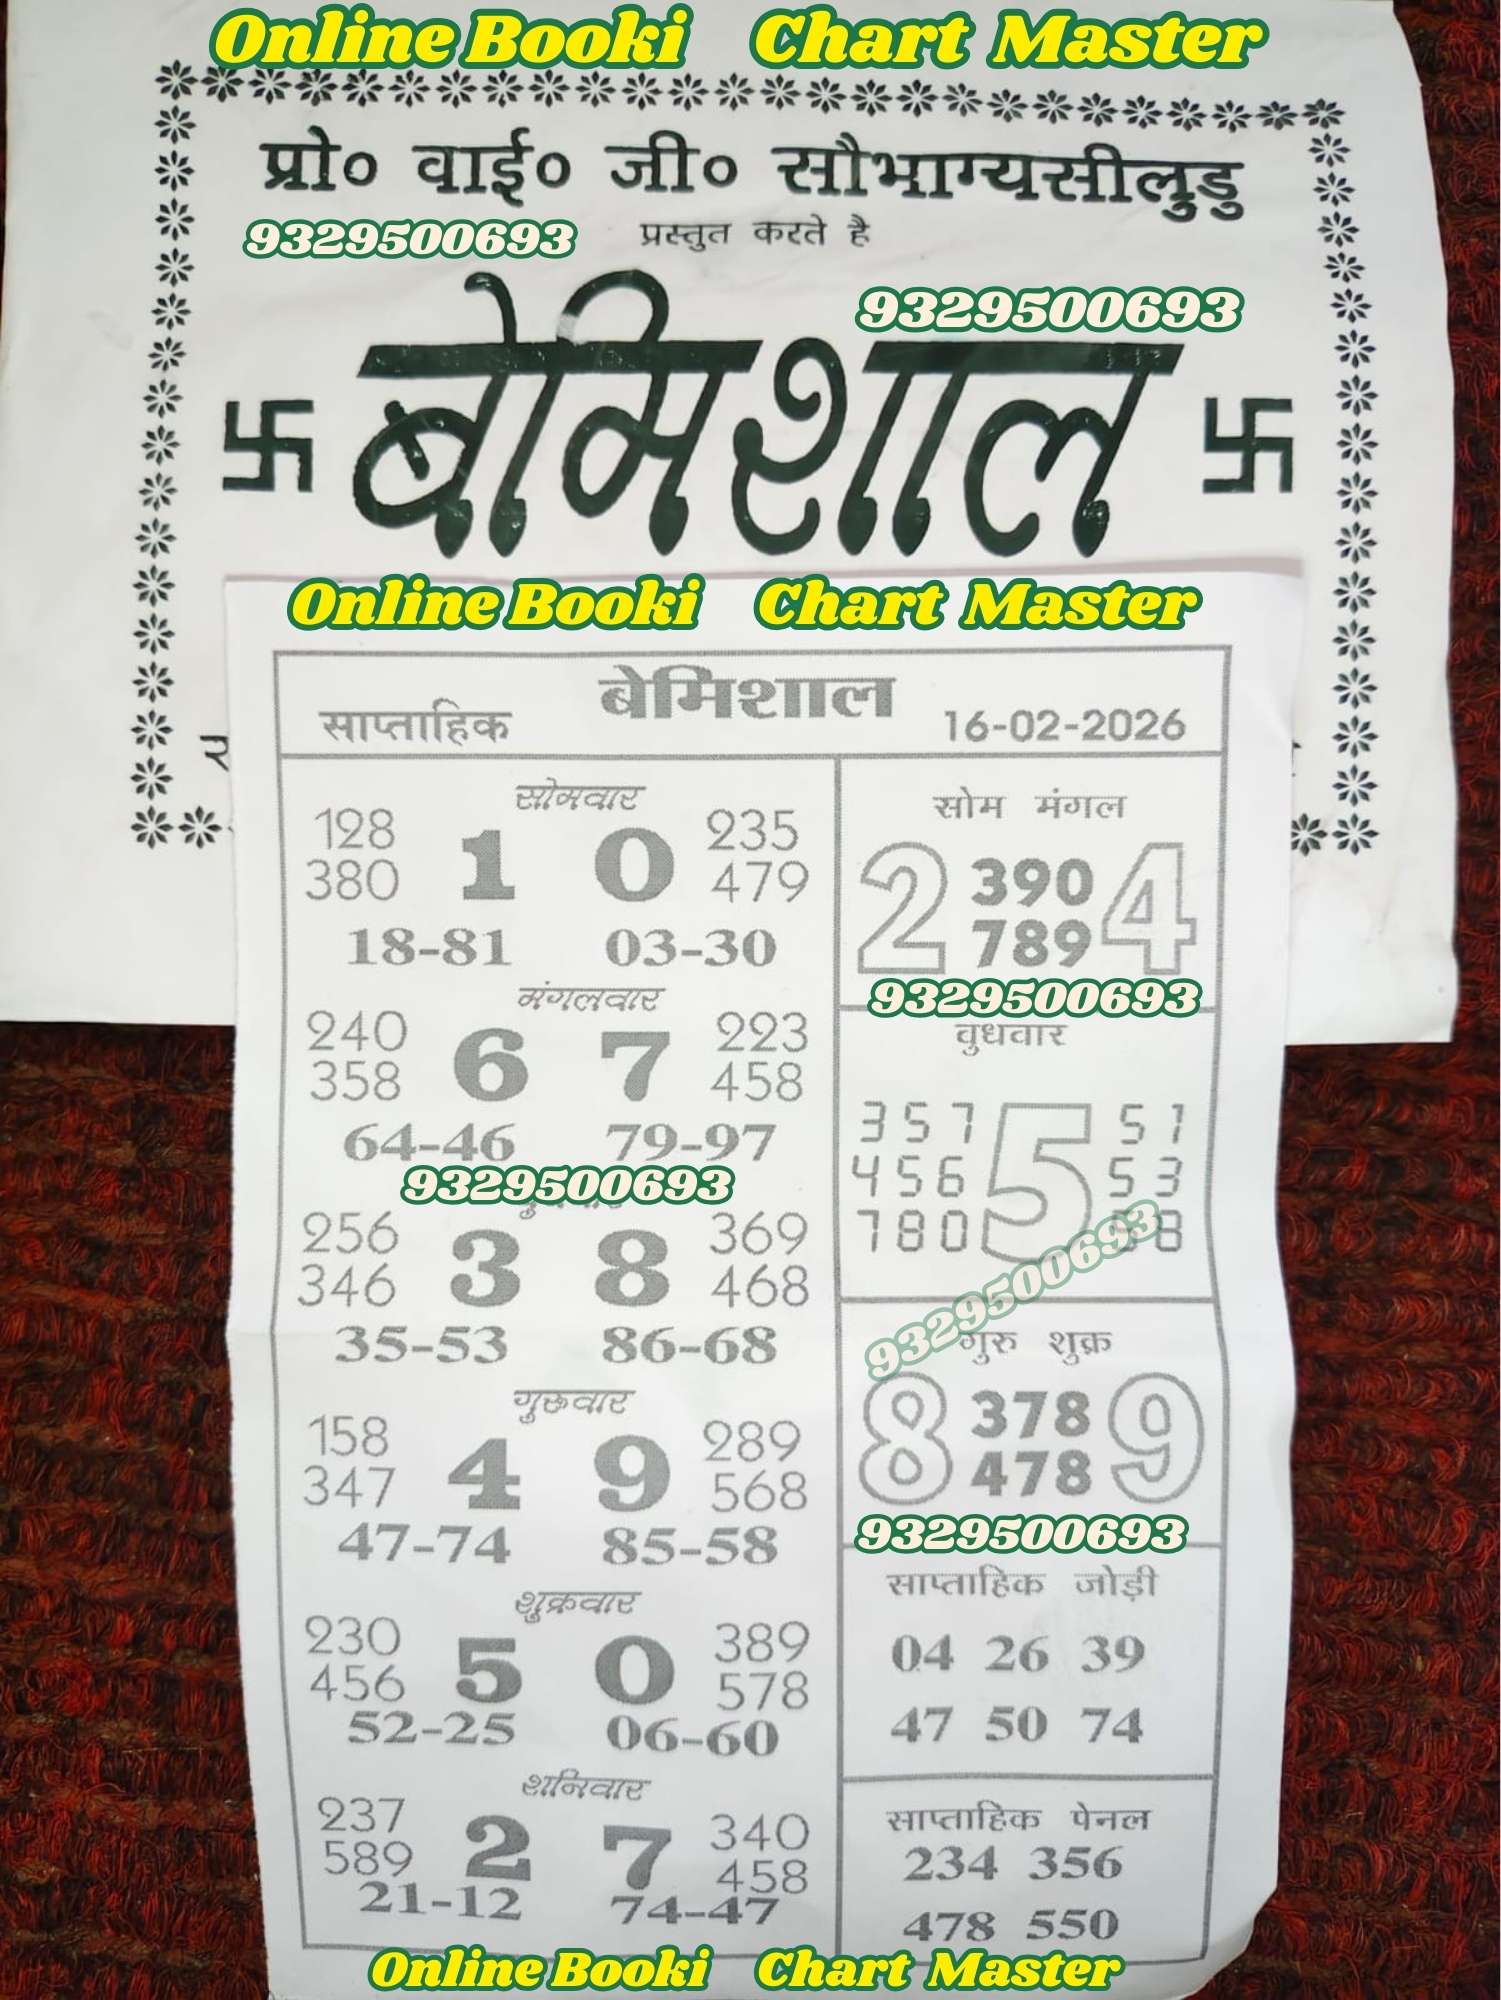 Online Booki Chart Master
प्रो० वाई० जी० सौभाग्यसीलुडु
9329500693
प्रस्तुत करते है
9329500693
बेमिशाल
Online Booki Chart Master
बेमिशाल
साप्ताहिक 16-02-2026
सोमवार
128 1 0 235
380 479
18-81 03-30
मंगलवार
240 6 7 223
358 458
64-46 79-97
9329500693
256 3 8 369
346 468
35-53 86-68
गुरूवार
158 4 9 289
347 568
47-74 85-58
शुक्रवार
230 5 0 389
456 578
52-25 06-60
शनिवार
237 2 7 340
589 458
21-12 74-47
सोम मंगल
2 390 4
789
9329500693
वुधवार
357 5 51
456 53
780
9329500693
गुरु शुक्र
8 378 9
478
9329500693
साप्ताहिक जोड़ी
04 26 39
47 50 74
साप्ताहिक पेनल
234 356
478 550
Online Booki Chart Master